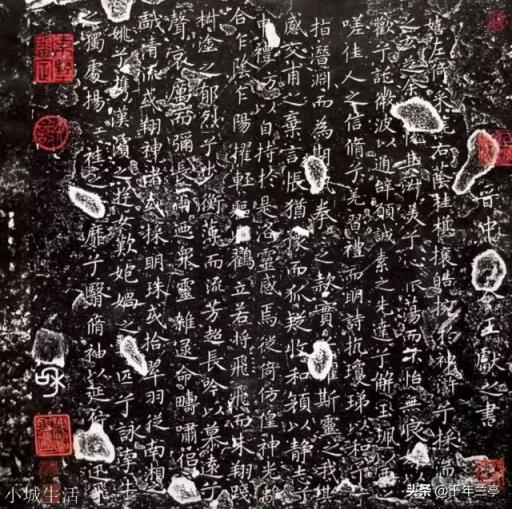 晉中 令王獻之書
嬉左倚采旄右蔭桂旗攘皓捥於神滸兮採湍
之玄芝余情悅其淑美兮心振蕩而不怡無良
歡兮託微波以通辭願誠素之先達兮解玉珮而要之
嗟佳人之信脩兮羌習禮而明詩抗瓊珶以和予兮
指潛淵而為期執拳之款實 懼斯靈之我欺
感交甫之棄言悵猶豫而狐疑收和顏以靜志兮
申禮防以自持於是洛靈感焉徙倚仿偟神光離
合乍陰乍陽擢輕軀以鶴立若將飛而未翔踐
椒塗之郁烈兮步衡薄而流芳超長吟以慕遠兮
聲哀厲而彌長爾迺眾靈雜遝命疇嘯侶
戲清流或翔神渚或採明珠或拾翠羽從南湘之
姚兮攜漢濱之游女歎匏媧之 匹兮詠牽牛
之獨處揚輕袿之 靡兮翳脩袖以延佇 迅飛
小城生活
头条 @千年兰亭